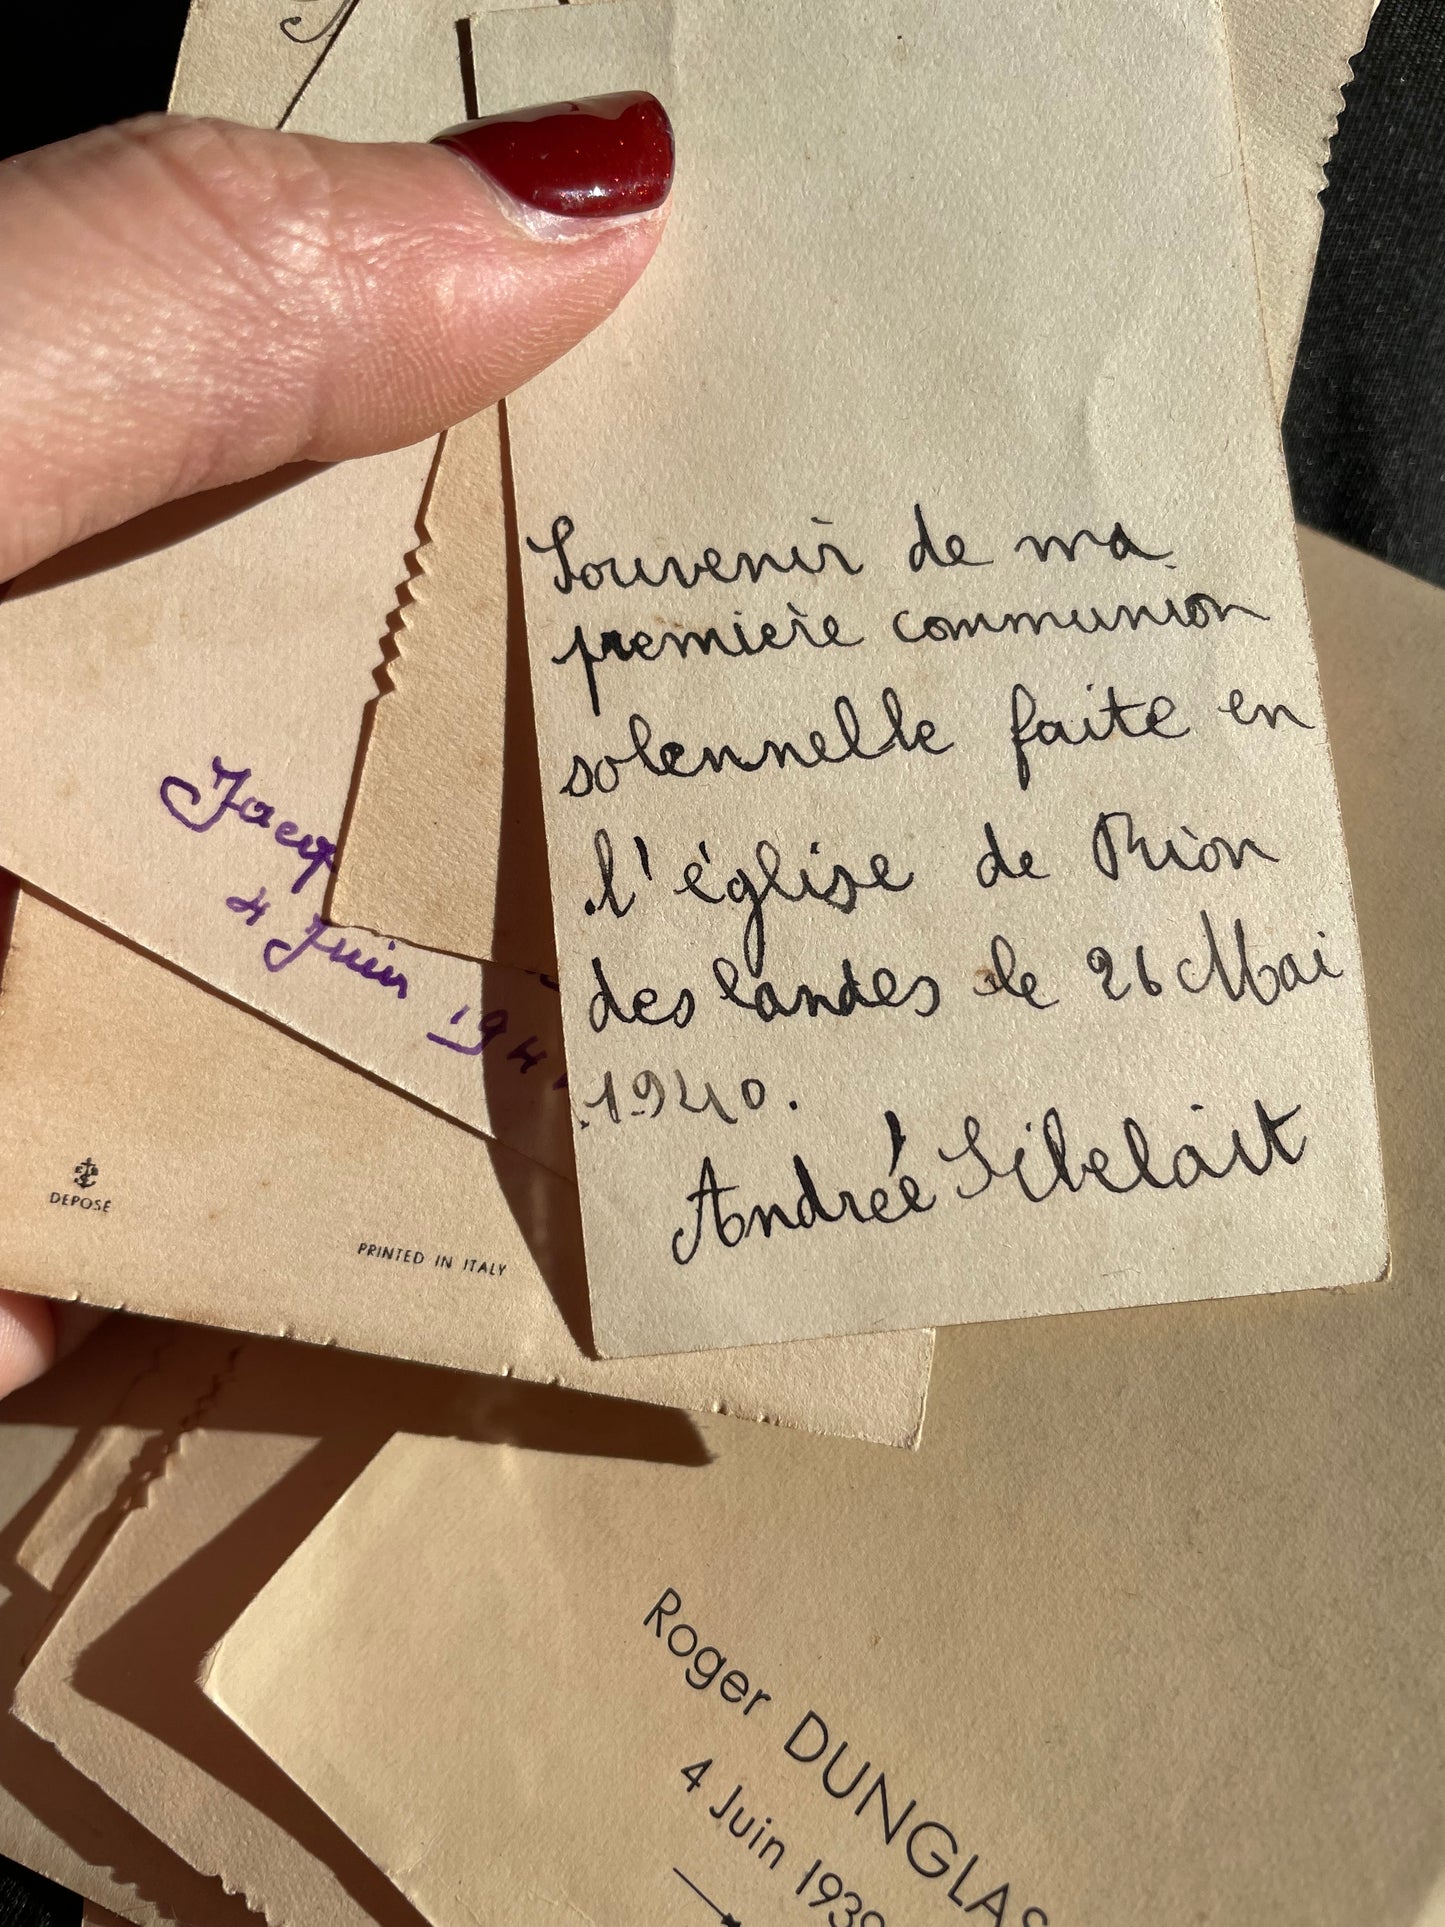 Souvenir de ma
première communion
solennelle faite en
l'église de Rion
des landes le 26 Mai
1940.
Andrée Sibelait
Jacq
4 Juin 194
DEPOSÉ
PRINTED IN ITALY
Roger DUNGLAS
4 Juin 1939